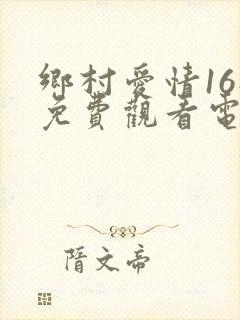 鄉村愛情16
免費觀看電
隋文帝